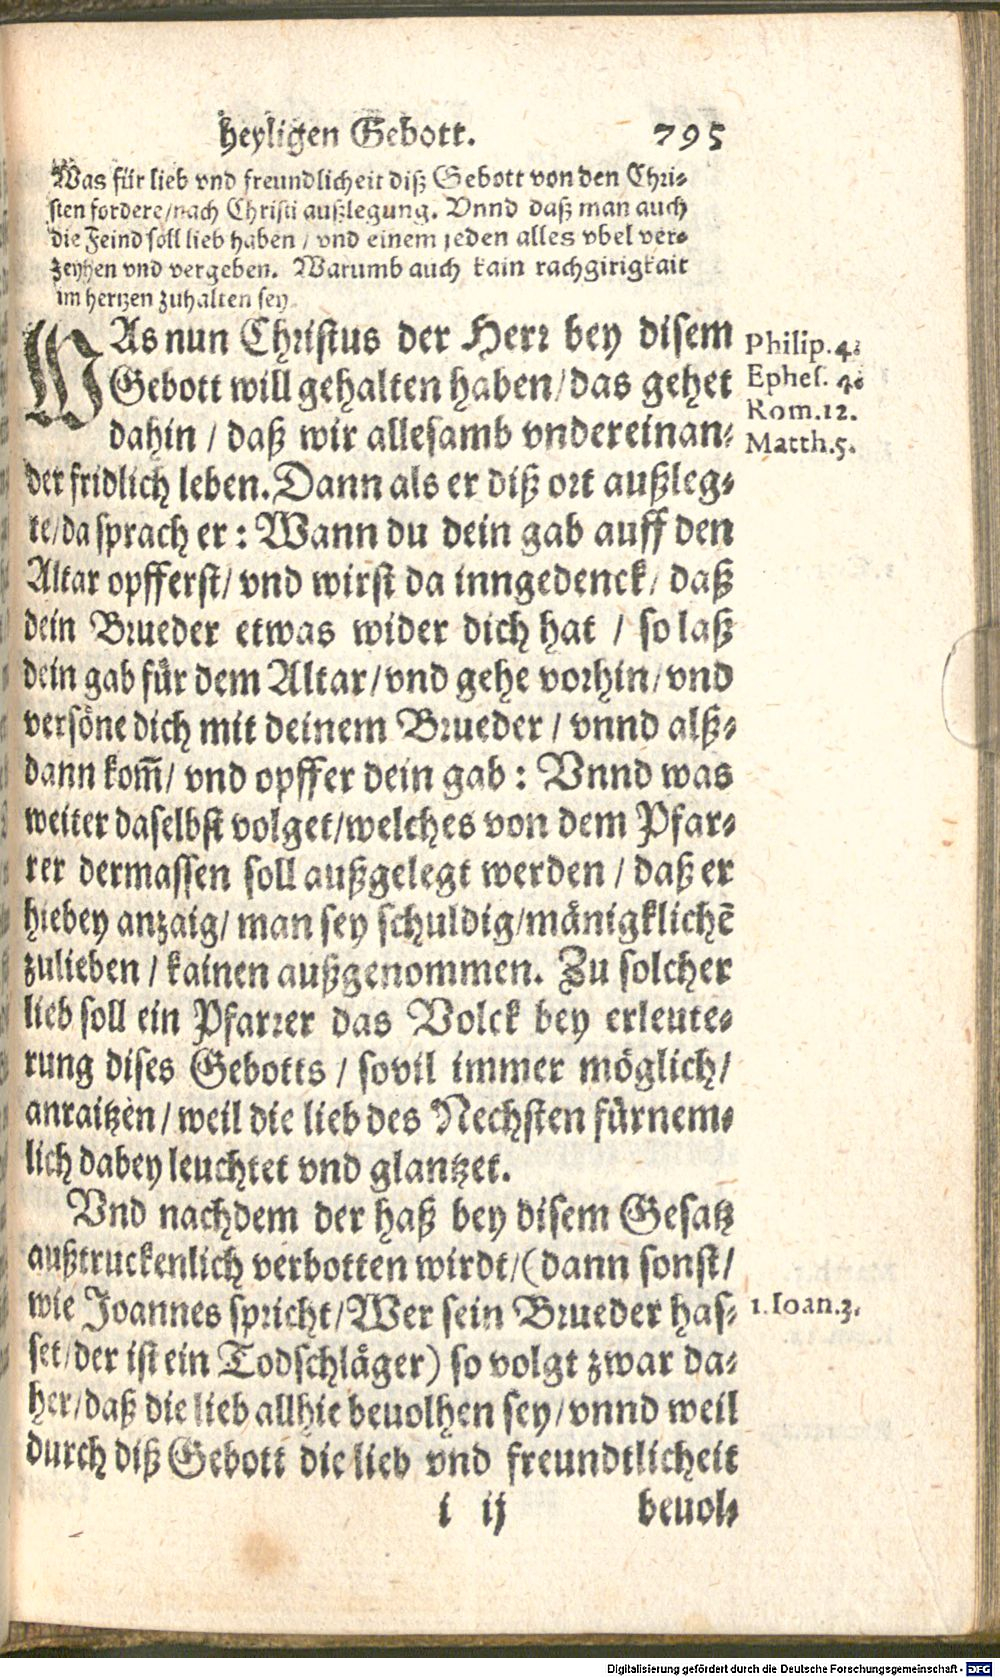 heyligen Gebott. 795
Was für lieb vnd freundlicheit diß Gebott von den Chri-
sten fordere/nach Christi außlegung. Vnnd daß man auch
die Feind soll lieb haben / vnd einem jeden alles vbel ver-
zeyhen vnd vergeben. Warumb auch kain rachgirigkait
im hertzen zuhalten sey.
WAs nun Christus der Herr bey disem
Gebott will gehalten haben/das gehet
dahin / daß wir allesamb vndereinan-
der fridlich leben. Dann als er diß ort außleg-
te/da sprach er: Wann du dein gab auff den
Altar opfferst/ vnd wirst da inngedenck/ daß
dein Brueder etwas wider dich hat / so laß
dein gab für dem Altar/vnd gehe vorhin/vnd
versöne dich mit deinem Brueder / vnnd alß-
dann kom̄/ vnd opffer dein gab: Vnnd was
weiter daselbst volget/welches von dem Pfar-
rer dermassen soll außgelegt werden / daß er
hiebey anzaig/ man sey schuldig/mänigklichē
zulieben / kainen außgenommen. Zu solcher
lieb soll ein Pfarrer das Volck bey erleute-
rung dises Gebotts / sovil immer möglich/
anraitzen/ weil die lieb des Nechsten fürnem-
lich dabey leuchtet vnd glantzet.
Vnd nachdem der haß bey disem Gesatz
außtruckenlich verbotten wirdt/(dann sonst/
wie Joannes spricht/Wer sein Brueder has-
set/der ist ein Todschläger) so volgt zwar da-
her/daß die lieb allhie beuolhen sey/vnnd weil
durch diß Gebott die lieb vnd freundtlicheit
i ij beuol-
Philip.4.
Ephes. 4.
Rom.12.
Matth.5.
1.Ioan.3.
Digitalisierung gefördert durch die Deutsche Forschungsgemeinschaft - DFG